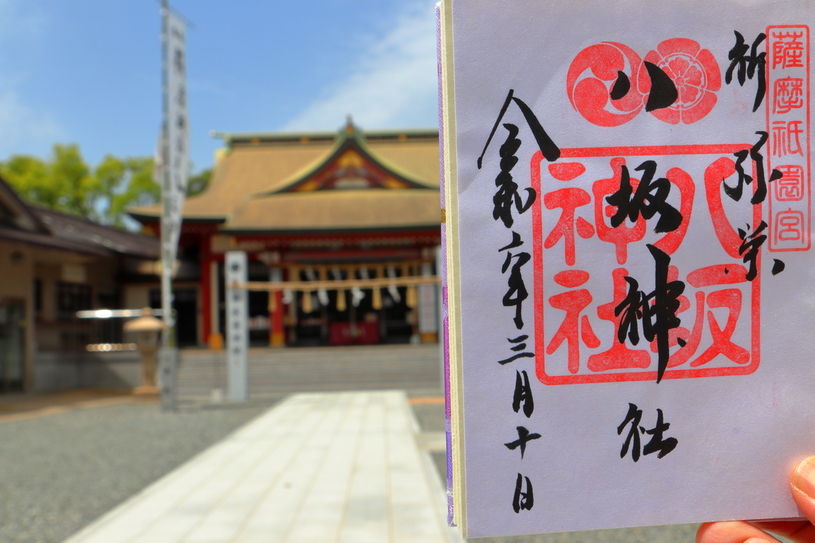 薩摩祇園宮
祈 弥栄
八坂神社
八坂
神社
令和六年三月十日